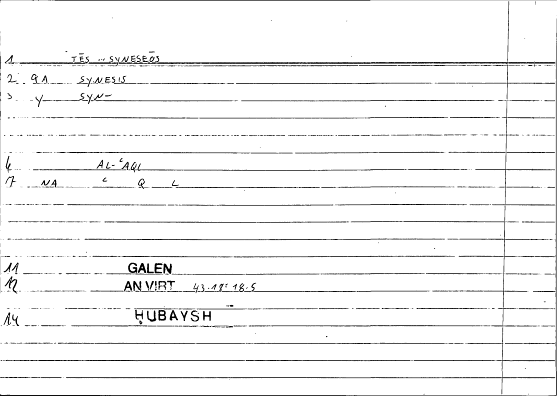 1 TĒS ... SYNESEŌS
2 9A SYNESIS
3 y SYN-
6 AL-ʿAQL
7 NA ʿ Q L
11 GALEN
12 AN VIRT 43.18 18.5
14 ḤUBAYSH